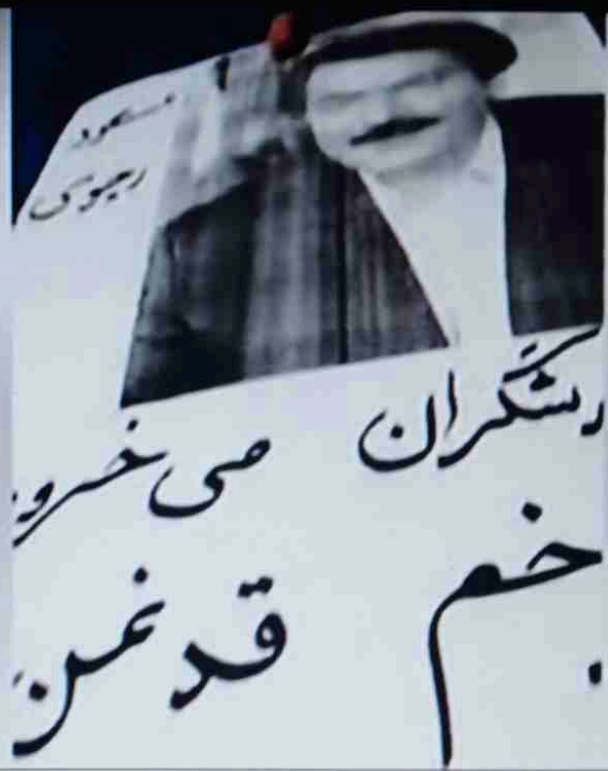 مسعود
رجوی
رشگران می خرو
خم قد نمن